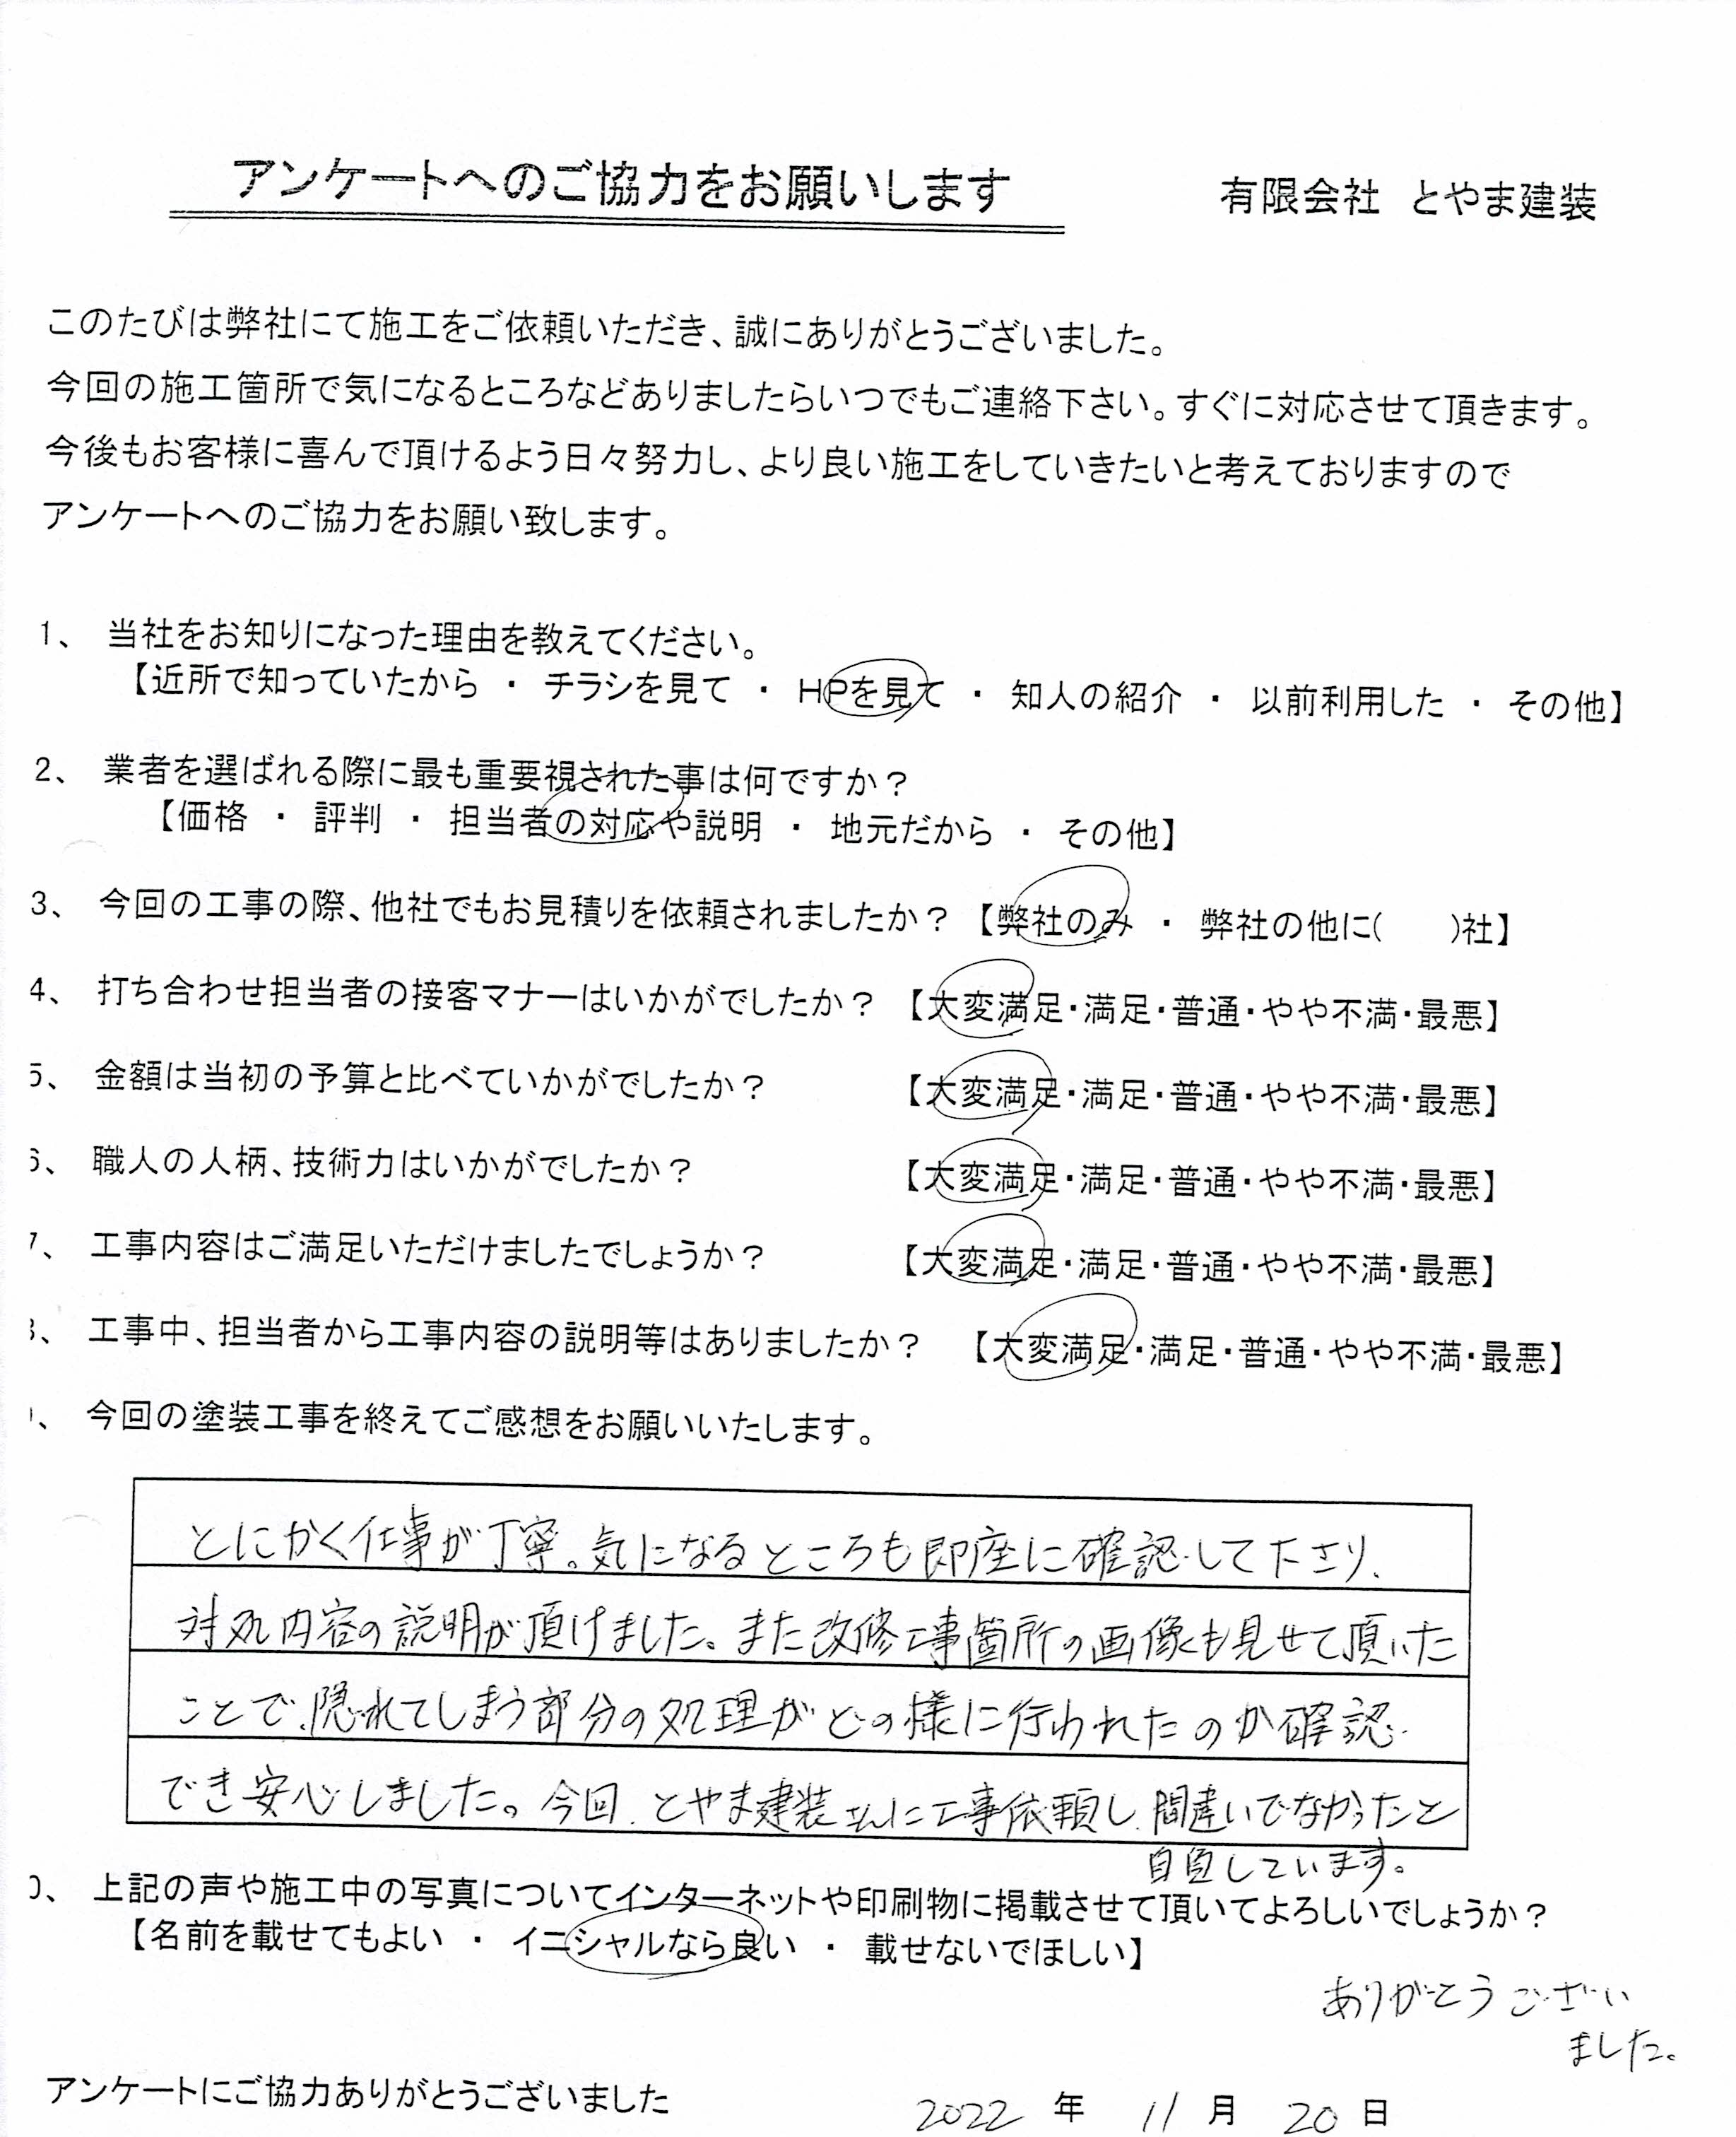 アンケートへのご協力をお願いします
有限会社 とやま建装
このたびは弊社にて施工をご依頼いただき、誠にありがとうございました。
今回の施工箇所で気になるところなどありましたらいつでもご連絡下さい。すぐに対応させて頂きます。
今後もお客様に喜んで頂けるよう日々努力し、より良い施工をしていきたいと考えておりますので
アンケートへのご協力をお願い致します。
1、 当社をお知りになった理由を教えてください。
【近所で知っていたから ・ チラシを見て ・ HPを見て ・ 知人の紹介 ・ 以前利用した ・ その他】
2、 業者を選ばれる際に最も重要視された事は何ですか？
【価格 ・ 評判 ・ 担当者の対応や説明 ・ 地元だから ・ その他】
3、 今回の工事の際、他社でもお見積りを依頼されましたか？ 【弊社のみ ・ 弊社の他に( )社】
4、 打ち合わせ担当者の接客マナーはいかがでしたか？ 【大変満足・満足・普通・やや不満・最悪】
5、 金額は当初の予算と比べていかがでしたか？ 【大変満足・満足・普通・やや不満・最悪】
6、 職人の人柄、技術力はいかがでしたか？ 【大変満足・満足・普通・やや不満・最悪】
7、 工事内容はご満足いただけましたでしょうか？ 【大変満足・満足・普通・やや不満・最悪】
8、 工事中、担当者から工事内容の説明等はありましたか？ 【大変満足・満足・普通・やや不満・最悪】
、 今回の塗装工事を終えてご感想をお願いいたします。
とにかく仕事が丁寧。気になるところも即座に確認して下さり、
対処内容の説明が頂けました。また改修工事箇所の画像も見せて頂いた
ことで、隠れてしまう部分の処理がどの様に行われたのか確認
でき安心しました。今回、とやま建装さんに工事依頼し、間違いでなかったと
自負しています。
0、 上記の声や施工中の写真についてインターネットや印刷物に掲載させて頂いてよろしいでしょうか？
【名前を載せてもよい ・ イニシャルなら良い ・ 載せないでほしい】
ありがとうござい
ました。
アンケートにご協力ありがとうございました
2022 年 11 月 20 日